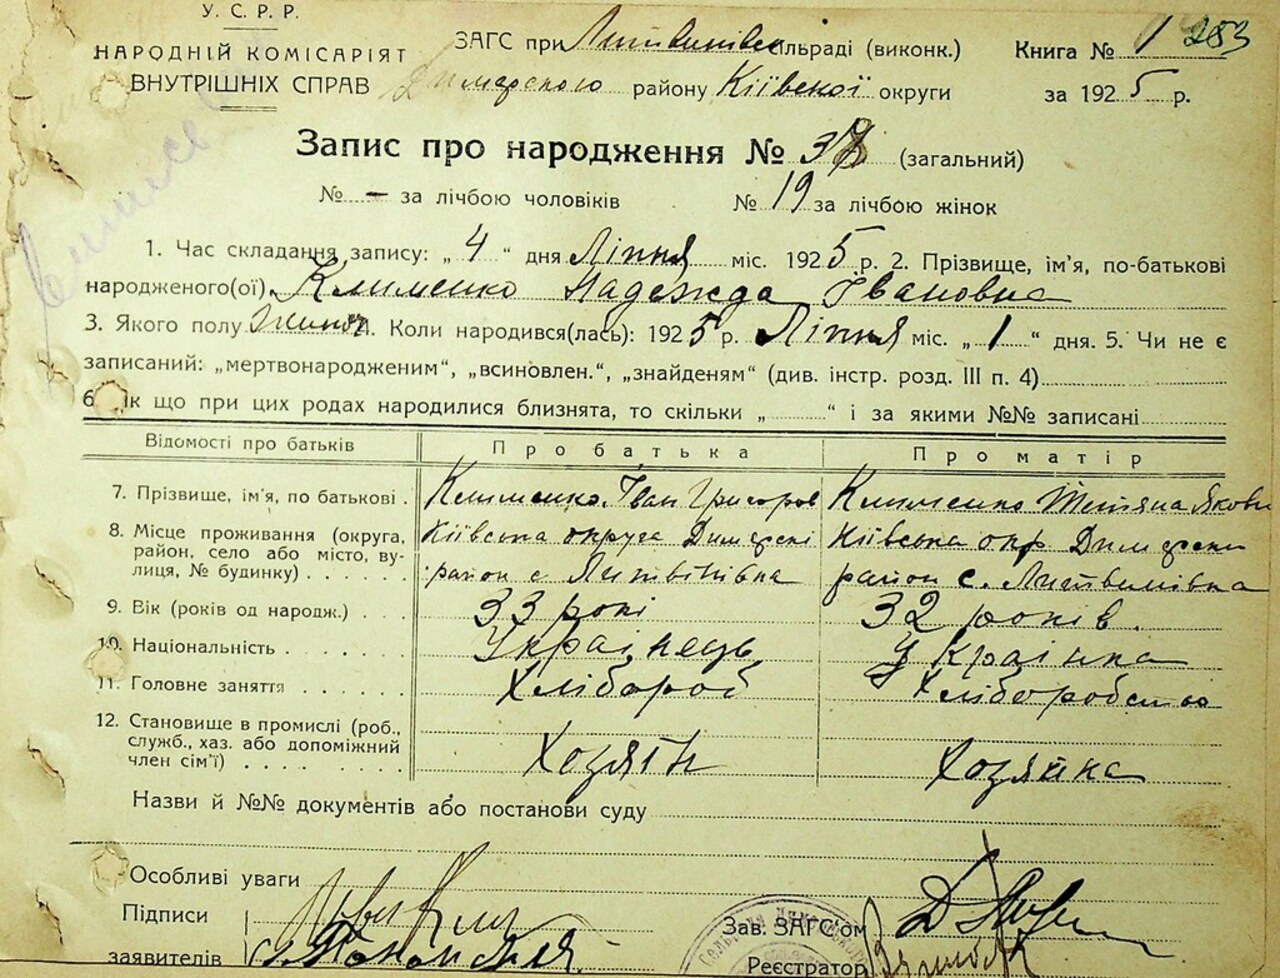 У. С. Р. Р.
НАРОДНІЙ КОМІСАРІЯТ
ВНУТРІШНІХ СПРАВ
ЗАГС при Литвинівс ільраді (виконк.)
Димерского району Київскої округи
Книга № 1 283
за 1925 р.
Запис про народження № 37 (загальний)
№ - за лічбою чоловіків № 19 за лічбою жінок
1. Час складання запису: „ 4 “ дня Ліпня міс. 1925 р. 2. Прізвище, ім’я, по-батькові
народженого(ої) Клименко Надежда Івановна
3. Якого полу 4. Коли народився(лась): 1925 р. Ліпня міс. „ 1 “ дня. 5. Чи не є
записаний: „мертвонародженим“, „всиновлен.“, „знайденям“ (див. інстр. розд. III п. 4)
6. Як що при цих родах народилися близнята, то скільки „ “ і за якими №№ записані
Відомості про батьків Про батька Про матір
7. Прізвище, ім’я, по батькові . Клименко Іван Григоров Клименко Тетяна Якови
8. Місце проживання (округа, Київська округа Димерскі Київська окр Димерски
район, село або місто, ву-
лиця, № будинку) . . . . . . район с Литвінівка район с. Литвинівка
9. Вік (років од народж.) . . . 33 рокі 32 років.
10. Національність . . . . . . . Українець Українка
11. Головне заняття . . . . . . Хлібороб Хліборобство
12. Становище в промислі (роб.,
служб., хаз. або допоміжний
член сім’ї) . . . . . . . . Хозяїн Хозяйка
Назви й №№ документів або постанови суду
Особливі уваги
Підписи
заявителів
Зав. ЗАГС’ом
Реєстратор